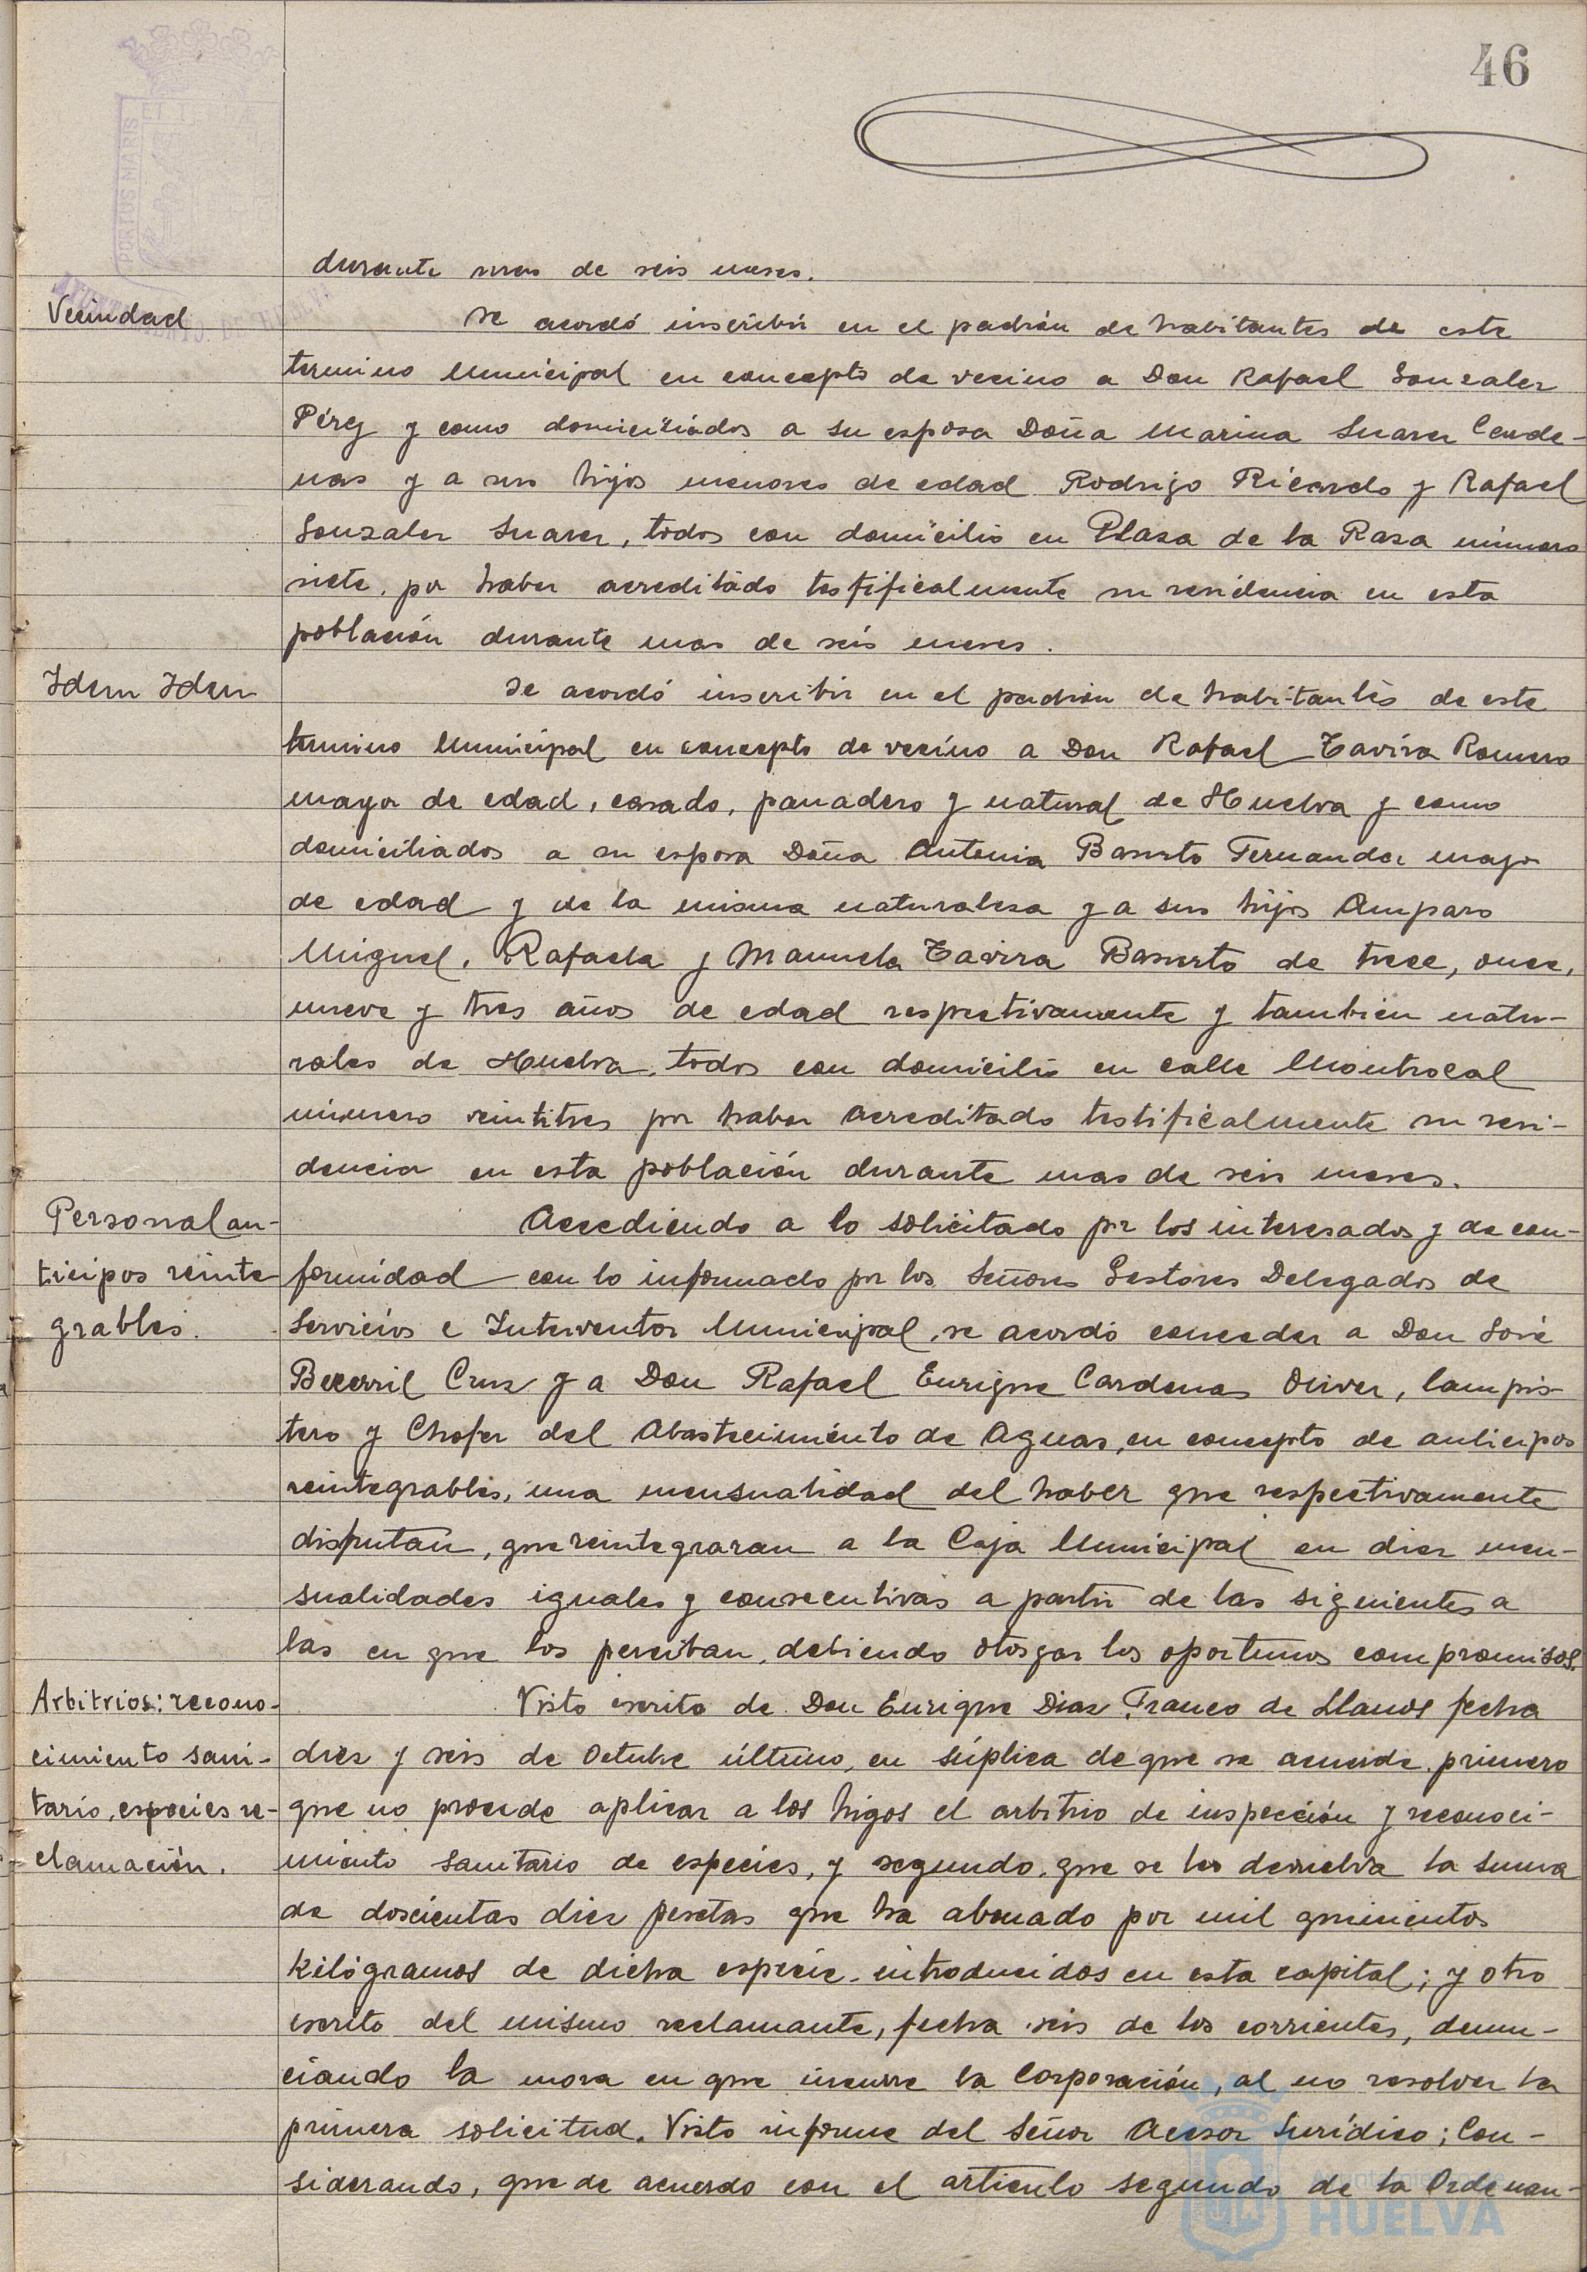 46
durante mas de seis meses.
Vecindad
se acordó inscribir en el padrón de habitantes de este
termino Municipal en concepto de vecino a Don Rafael Gonzalez
Pérez y como domiciliados a su esposa Doña Marina Suarez Carde-
nas y a sus hijos menores de edad Rodrigo Ricardo y Rafael
Gonzalez Suarez, todos con domicilio en Plaza de la Raza número
siete, por haber acreditado testificalmente su residencia en esta
población durante mas de seis meses.
Idem Idem
Se acordó inscribir en el padrón de habitantes de este
termino Municipal en concepto de vecino a Don Rafael Tavira Romero
mayor de edad, casado, panadero y natural de Huelva y como
domiciliados a su esposa Doña Antonia Basurto Fernandez mayor
de edad y de la misma naturaleza y a sus hijos Amparo
Miguel, Rafaela y Manuela Tavira Basurto de trece, once,
nueve y tres años de edad respectivamente y tambien natu-
rales de Huelva, todos con domicilio en calle Montrocal
número veintitres por haber acreditado testificalmente su resi-
dencia en esta población durante mas de seis meses.
Personal an-
ticipos reinte
grables.
Accediendo a lo solicitado por los interesados y de con-
formidad con lo informado por los Señores Gestores Delegados de
Servicios e Interventor Municipal, se acordó conceder a Don José
Becerril Cruz y a Don Rafael Enrique Cardenas Oliver, lampis-
tero y Chofer del Abastecimiento de Aguas, en concepto de anticipos
reintegrables, una mensualidad del haber que respectivamente
disfrutan, que reintegraran a la Caja Municipal en diez men-
sualidades iguales y consecutivas a partir de las siguientes a
las en que los perciban, debiendo otorgar los oportunos compromisos.
Arbitrios: recono-
cimiento sani-
tario, especies re-
clamación.
Visto escrito de Don Enrique Diaz Franco de Llanos fecha
diez y seis de Octubre último, en súplica de que se acuerde, primero
que no procede aplicar a los higos el arbitrio de inspección y reconoci-
miento sanitario de especies, y segundo, que se les devuelva la suma
de doscientas diez pesetas que ha abonado por mil quinientos
kilógramos de dicha especie introducidos en esta capital; y otro
escrito del mismo reclamante, fecha seis de los corrientes, denun-
ciando la mora en que incurre la Corporación, al no resolver la
primera solicitud. Visto informe del Señor Acesor Jurídico; Con-
siderando, que de acuerdo con el articulo segundo de la Ordenan-
PORTUS MARIS
ET T
AYUNTAMIENTO DE HUELVA
Ayuntamiento de
HUELVA